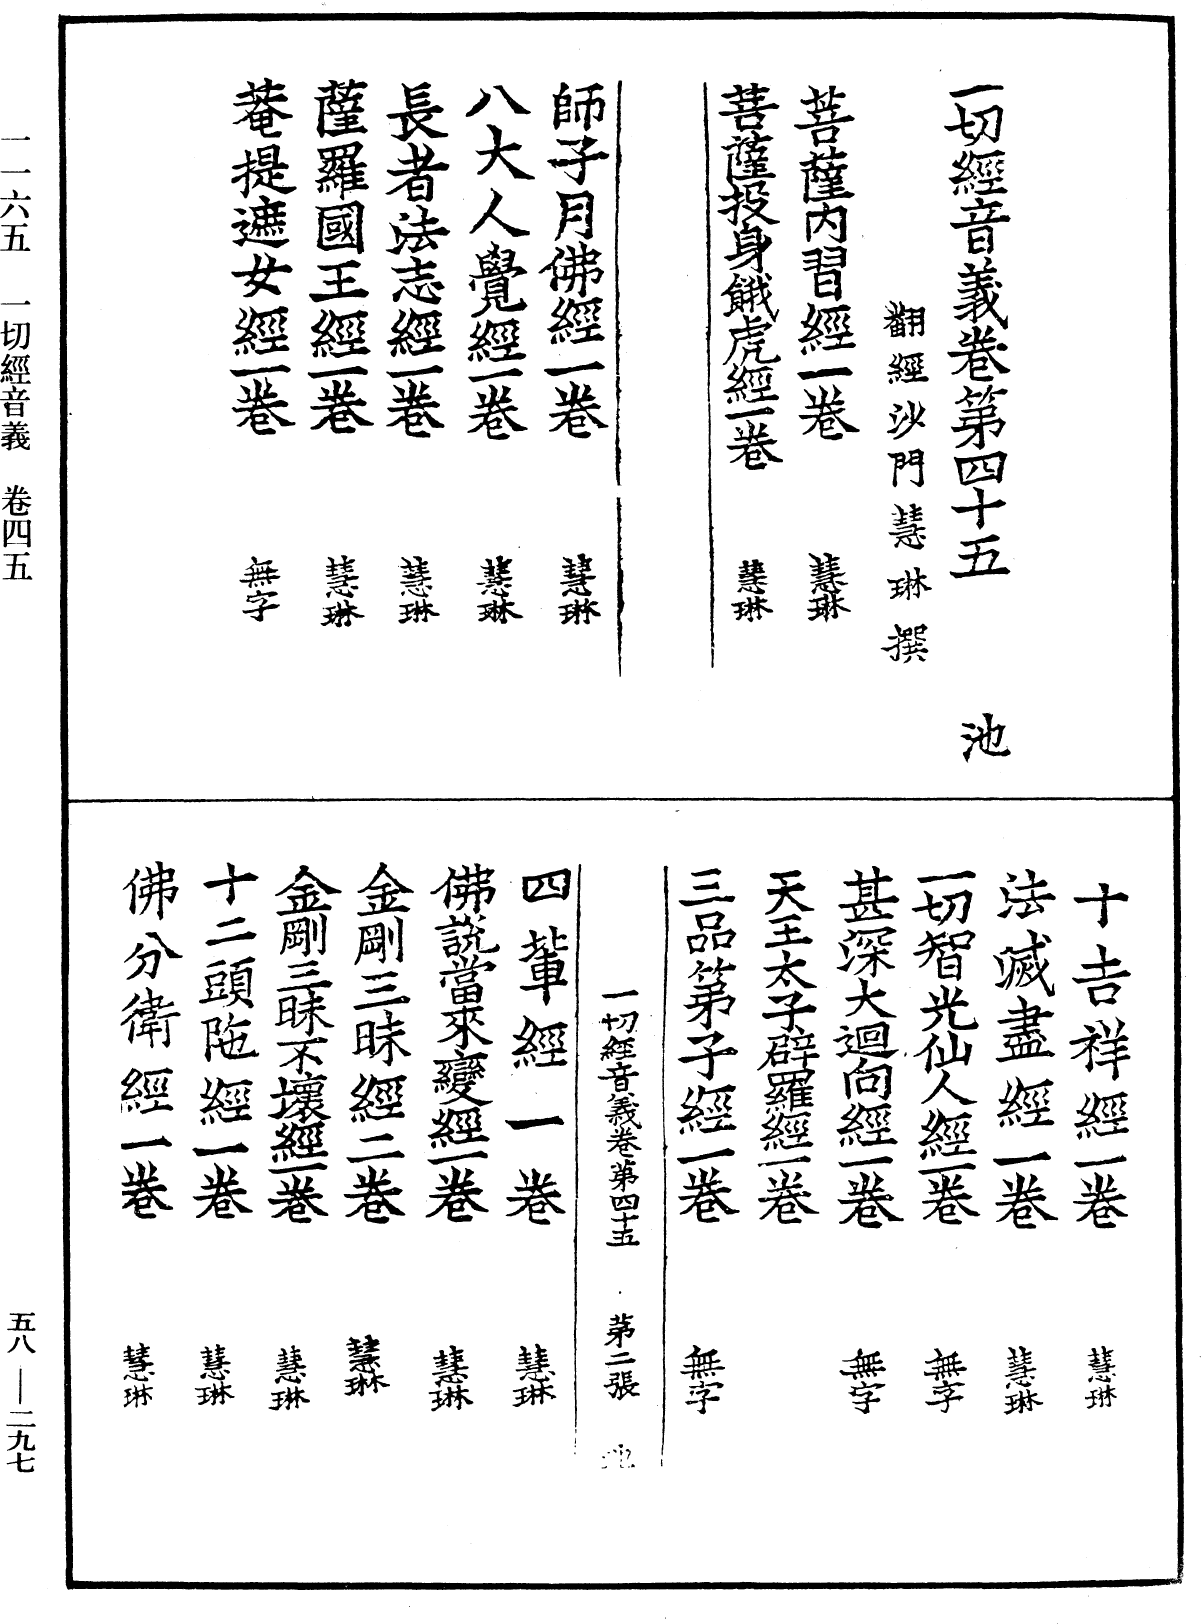 一切經音義卷第四十五　池
翻經沙門慧琳撰
菩薩内習經一卷　慧琳
菩薩投身餓虎經一卷　慧琳
師子月佛經一卷　慧琳
八大人覺經一卷　慧琳
長者法志經一卷　慧琳
薩羅國王經一卷　慧琳
菴提遮女經一卷　無字
十吉祥經一卷　慧琳
法滅盡經一卷　慧琳
一切智光仙人經一卷　無字
甚深大迴向經一卷　無字
天王太子辟羅經一卷
三品弟子經一卷　無字
一切經音義卷第四十五　第二張　池
四輩經一卷　慧琳
佛說當來變經一卷　慧琳
金剛三昧經二卷　慧琳
金剛三昧不壞經一卷　慧琳
十二頭陁經一卷　慧琳
佛分衛經一卷　慧琳
一一六五　一切經音義　卷四五
五八—二九七